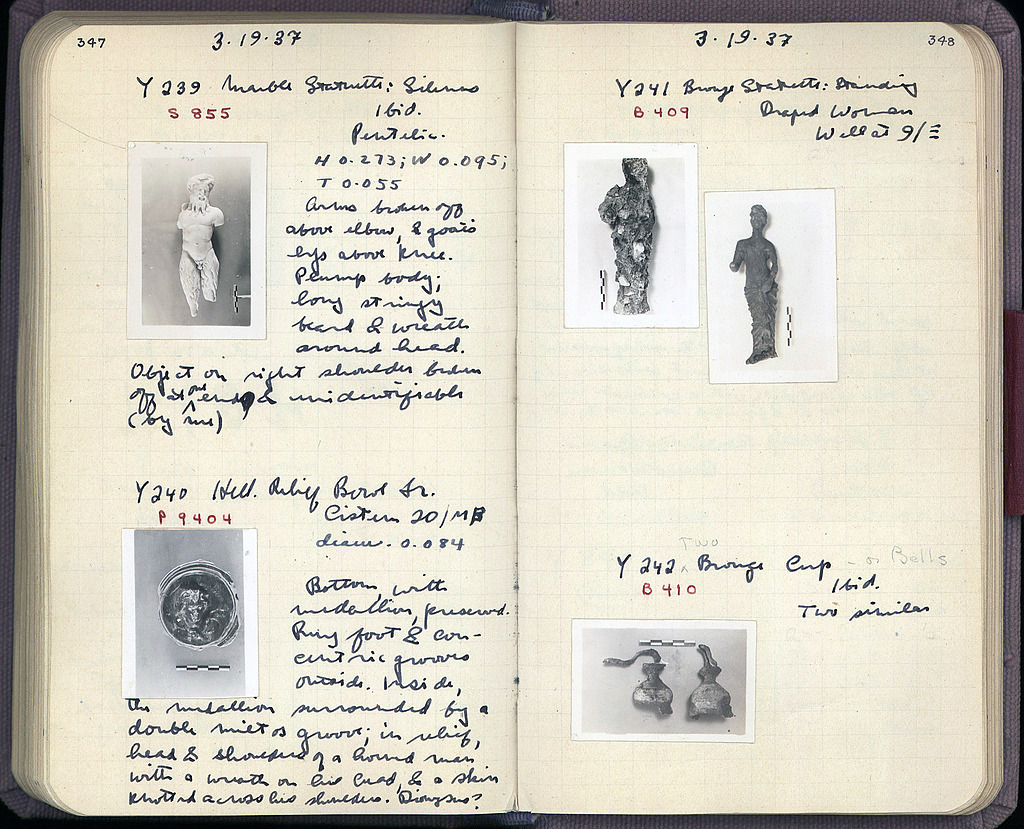 347
3.19.37
Y 239 Marble Statuette: Silenus
S 855
Ibid.
Pentelic.
H 0.273; W 0.095;
T 0.055
Arms broken off
above elbow, & goat's
legs above knee.
Plump body;
long stringy
beard & wreath
around head.
Object on right shoulder broken
off at one end, & unidentifiable
(by me)
Y 240 Hell. Relief Bowl Fr.
P 9404
Cistern 20/ΜΒ
diam. 0.084
Bottom, with
medallion, preserved.
Ring foot & con-
centric grooves
outside. Inside,
the medallion surrounded by a
double miltos groove; in relief,
head & shoulders of a horned man
with a wreath on his head, & a skin
knotted across his shoulders. Dionysus?
348
3.19.37
Y 241 Bronze Statuette: Standing
B 409
Draped Woman
Well at 9/Ξ
Y 242 Two Bronze Cup - or Bells
B 410
Ibid.
Two similar